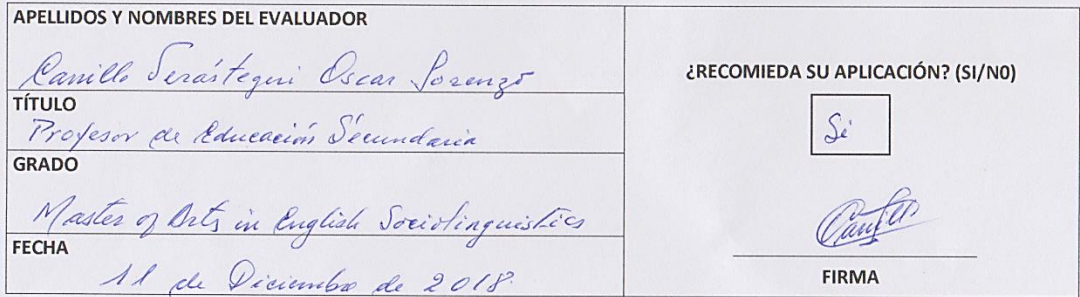 APELLIDOS Y NOMBRES DEL EVALUADOR
Carrillo Verástegui Oscar Lorenzo
TÍTULO
Profesor de Educación Secundaria
GRADO
Master of Arts in English Sociolinguistics
FECHA
11 de Diciembre de 2018.
¿RECOMIEDA SU APLICACIÓN? (SI/N0)
Si
FIRMA